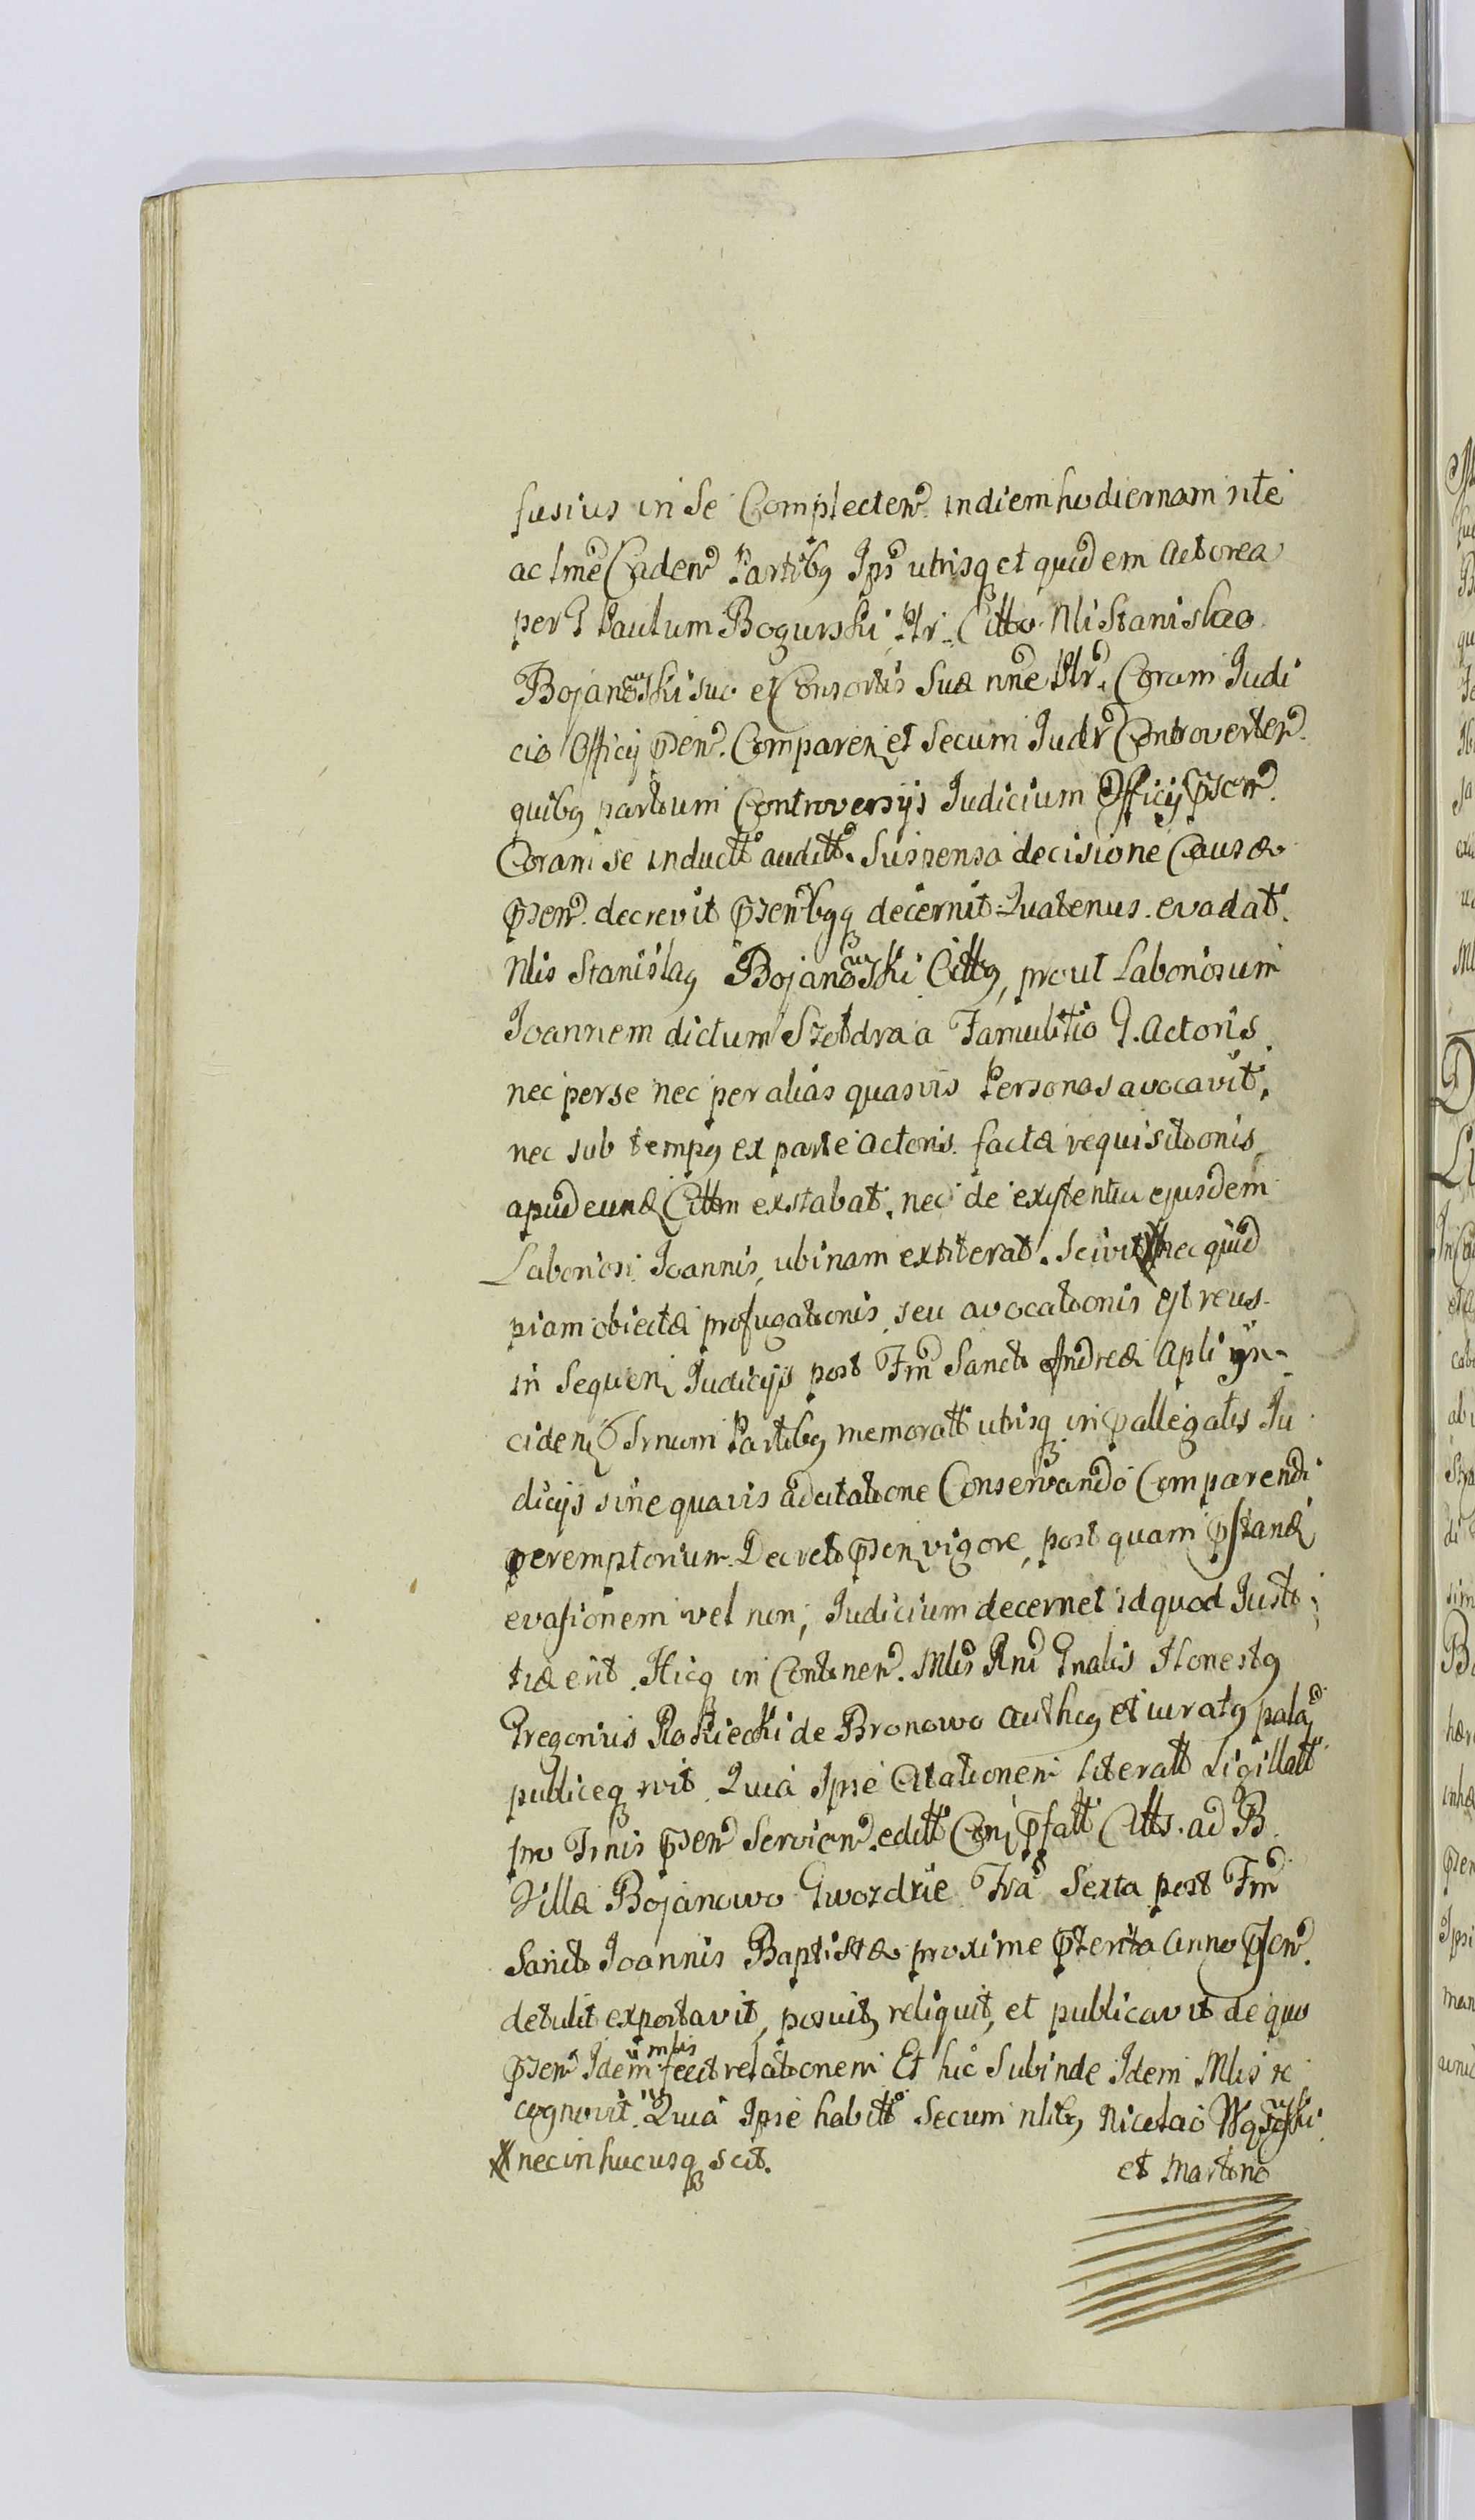 fusius in se Complecten. in diem hodiernam rite
ac lme Caden Partibq Ips utrisq et quidem Actorea
per G Paulum Bogurski Mr. Citto. Nli Stanislao
Bojanowski suo et Consortis Suæ nne Mr. Coram Judi
cio Officij Psen. Comparen et Secum Judr Controverten.
quibq partium Controversijs Judicium Officij Psen.
Coram se inductt auditt. Suspensa decisione Causæ
Psen. decrevit Psenbqq decernit. Quatenus. evadat.
Nlis Stanislaq Bojanowski Cittq, prout Laboriosum
Joannem dictum Szetdra a Famulitio G. Actoris
nec per se nec per alias quasvis Personas avocavit,
nec sub tempq ex parte Actoris. factæ requisitionis
apud eund Cittm exstabat, nec de existentia ejusdem
Laboriosi Joannis, ubinam extiterat. Scivit nec quid
piam obiectæ profugationis, seu avocationis est reus.
in Sequen Judicijs post Fm Sancti Andreæ Apli in-
ciden Trnum Partibq memoratt utrisq in pallegatis Ju
dicijs sine quavis adcitatione Conservando Comparendi
peremptorium. Decreti Psen vigore, post quam pstand
evasionem vel non, Judicium decernet id quod Justi
tiæ erit. Hicq in Continen. Mlis Rni Gnalis Honestq
Gregorius Rokicki de Bronowo authcq et iuratq palā
publiceq rvit. Quia Ipse Citationem literatt sigillatt
pro Trnis Psen Servien. editt Con pfatt Citts. ad B.
Villæ Bojanowo Gwozdzie Fra Sexta post Fm
Sancti Joannis Baptistæ proxime Pterita Anno Psen.
detulit exportavit, posuit, reliquit, et publicavit de quo
Psen Idem mlis fecit relationem Et hic Subinde Idem Mlis re
cognovit. Quia Ipse habitt Secum nlibq Nicolao Wąsowski
nec in hucusq scit.
et Martino